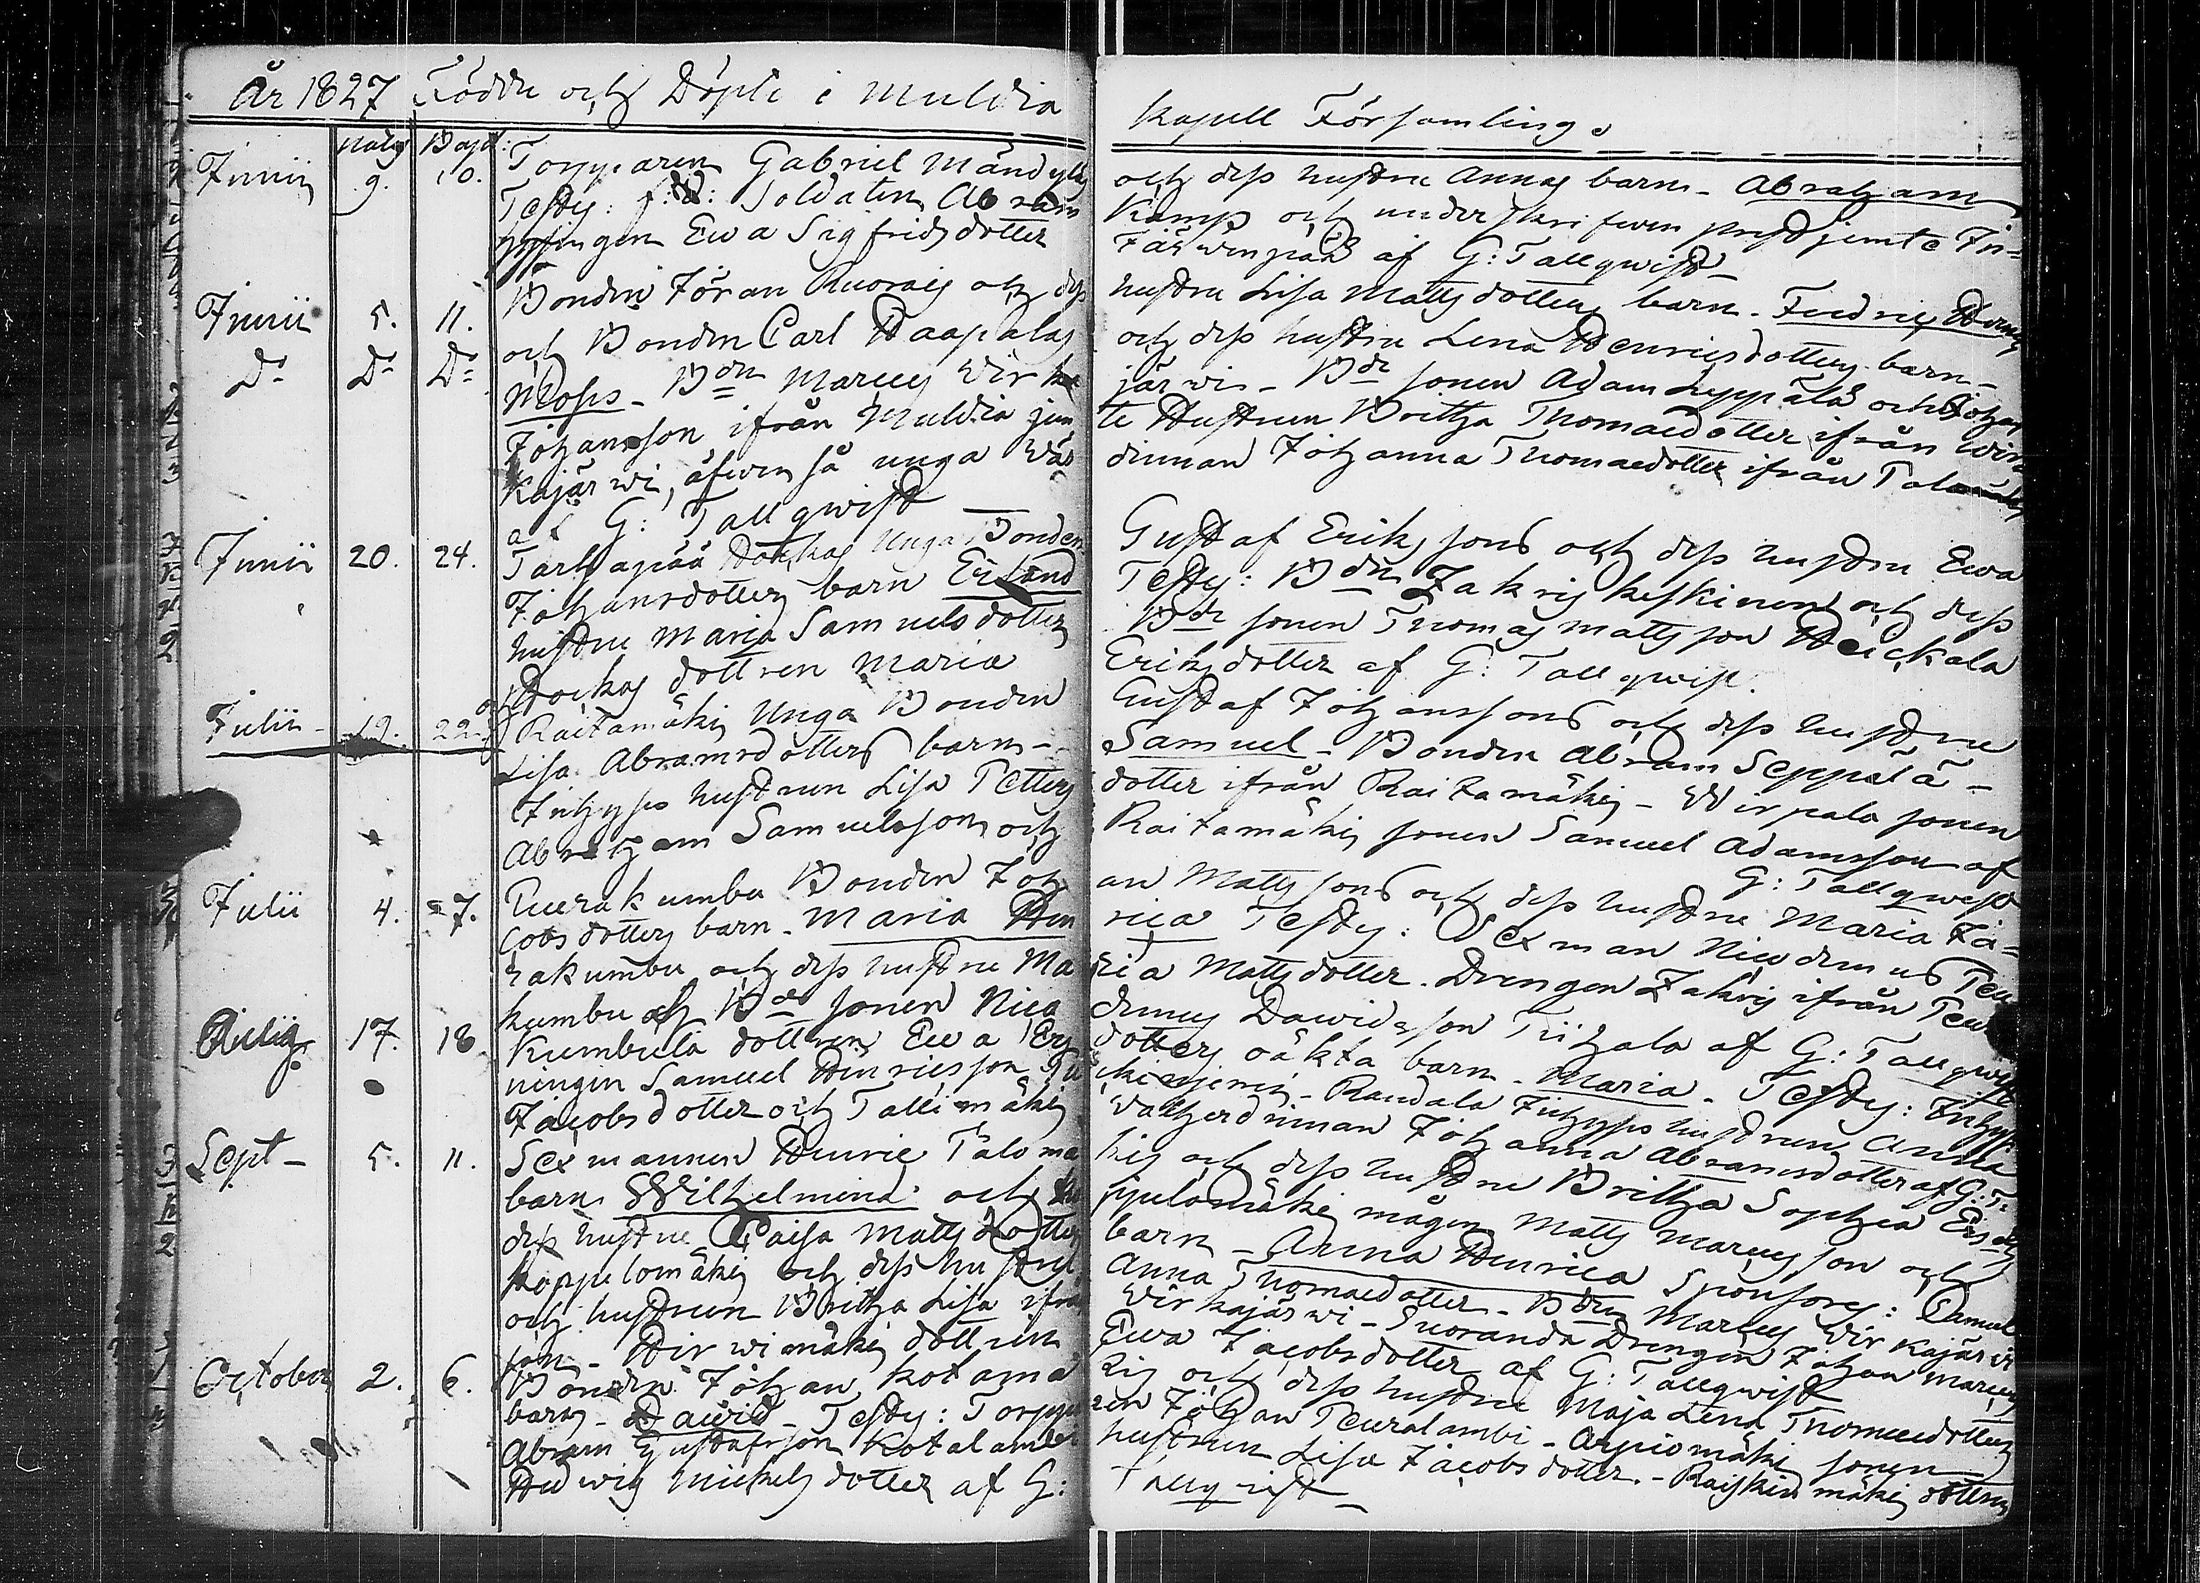 År 1827 Födde och Döpte i Muldia
natus Bapt:
Junii 9. 10. Torpparen Gabriel Mändyläs
Testes: f. d: Soldaten Abram
Ewa Sigfridsdotter
Junii 5. 11. Bonden Jöran Ruorais och dess
Do Do Do och Bonden Carl Haapalas
Moses - Bdn Marcus Wirka
Johansson ifrån Muldia jem
kajärwi, äfwen så unga Wär
af G: Tallqwist
Junii 20. 24. Tarhapää Hockas Unga Bonden
Johansdotters barn Erland
hustru Maria Samuelsdotter
Hockas dottren Maria
Julii - 19. 22. Raitamäki Unga Bonden
Lisa Abramsdotters barn -
Inhyses hustrun Lisa Petters
Abraham Samuelsson och
Julii 4. 7. Bonden Joh
cobsdotters barn - Maria Hen
rakumbu och dess hustru Ma
kumbu Bde sonen Nico
Julii 17. 18 Kumbula dottren Ewa
ningen Samuel Henricsson
Jacobsdotter och Tallimäki
Sept - 5. 11. Sexmannen Henric Taloma
barn Wilhelmina och
dess hustru Caisa Mattsdotters
koppelomäki och dess hustru
och hustrun Britha Lisa ifrå
son - Hirwimäki dottren
October 2. 6. Bonden Johan Kotama
barn - Dawid - Testes: Torppa
Abram Gustafsson Kotalambi
Hedwig Mickelsdotter af G:
Kapell Församling.
och dess hustru Annas barn - Abraham
Kamp och underskrifwen prest jemte In-
Järwenpää af G: Tallqwist -
hustru Lisa Mattsdotters barn - Fredric Herman
och dess hustru Lena Henricsdotters barn -
järwi - Bde sonen Adam Leppälä och Johan
te Hustrun Britha Thomaedotter ifrån Wir
dinnan Johanna Thomaedotter ifrån
Gustaf Erikssons och dess hustru Ewa
Testes: Bdn Zakris Keskinen och dess
Bde sonen Thomas Mattsson Heickala
Eriksdotter af G: Tallqwist.
Gustaf Johanssons och dess hustru
Samuel - Bonden Abram Seppälä -
dotter ifrån Raitamäki - Wirpala sonen
Raitamäki sonen Samuel Adamsson af
G: Tallqwist
an Mattssons och dess hustru Maria Ja-
rica Testes: Sexman Nicodemus Peu
ria Mattsdotter. Drengen Zakris ifrån Peu
demus Dawidsson Tiihala af G: Tallqwist
dotters oäkta barn - Maria - Testes: Inhys
Randala Inhyses hustrun Anna
Johanna Abramsdotter af G: T.
ki och dess hustru Britha Sophia Ersdrs
mågen Matts Marcusson och
barn - Anna Henrica Sponsores: Samuel
Anna Thomaedotter - Bdn Marcus Wirkajärwi
Wirkajärwi - Suoranda Drengen Johan Marcus
Ewa Jacobsdotter af G: Tallqwist
ki och dess hustru Maja Lena Thomaedotters
ren Johan Peuralambi - Arpiomäki sonen
hustrun Lisa Jacobsdotter. - Raiskinmäki dottren
Tallqwist -